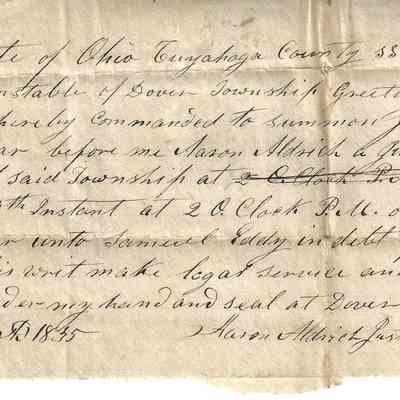 te of Ohio Cuyahoga County SS
nstable of Dover Township Greeti
hereby Commanded to summon J
ar before me Aaron Aldrich a Ju
said Township at 2 O. Clock P.M
th Instant at 2 O. Clock P.M. o
r unto Samuel Eddy in debt
is writ make legal service an
nder my hand and seal at Dover
AD 1835 Aaron Aldrich Jus